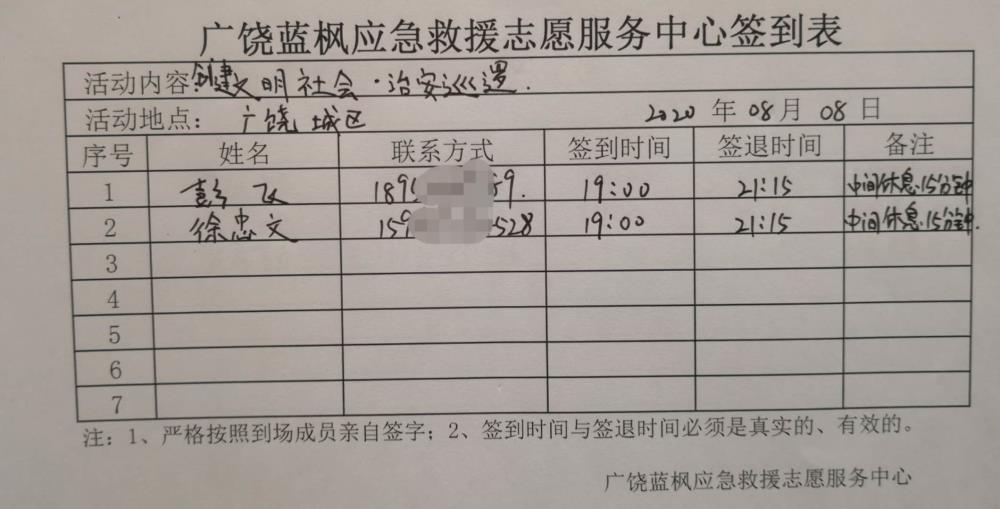 广饶蓝枫应急救援志愿服务中心签到表
活动内容:创建文明社会·治安巡逻.
活动地点: 广饶城区 2020 年 08 月 08 日
序号 姓名 联系方式 签到时间 签退时间 备注
1 彭飞 189 59. 19:00 21:15 中间休息15分钟
2 徐忠文 159 528 19:00 21:15 中间休息15分钟.
3
4
5
6
7
注:1、严格按照到场成员亲自签字;2、签到时间与签退时间必须是真实的、有效的。
广饶蓝枫应急救援志愿服务中心